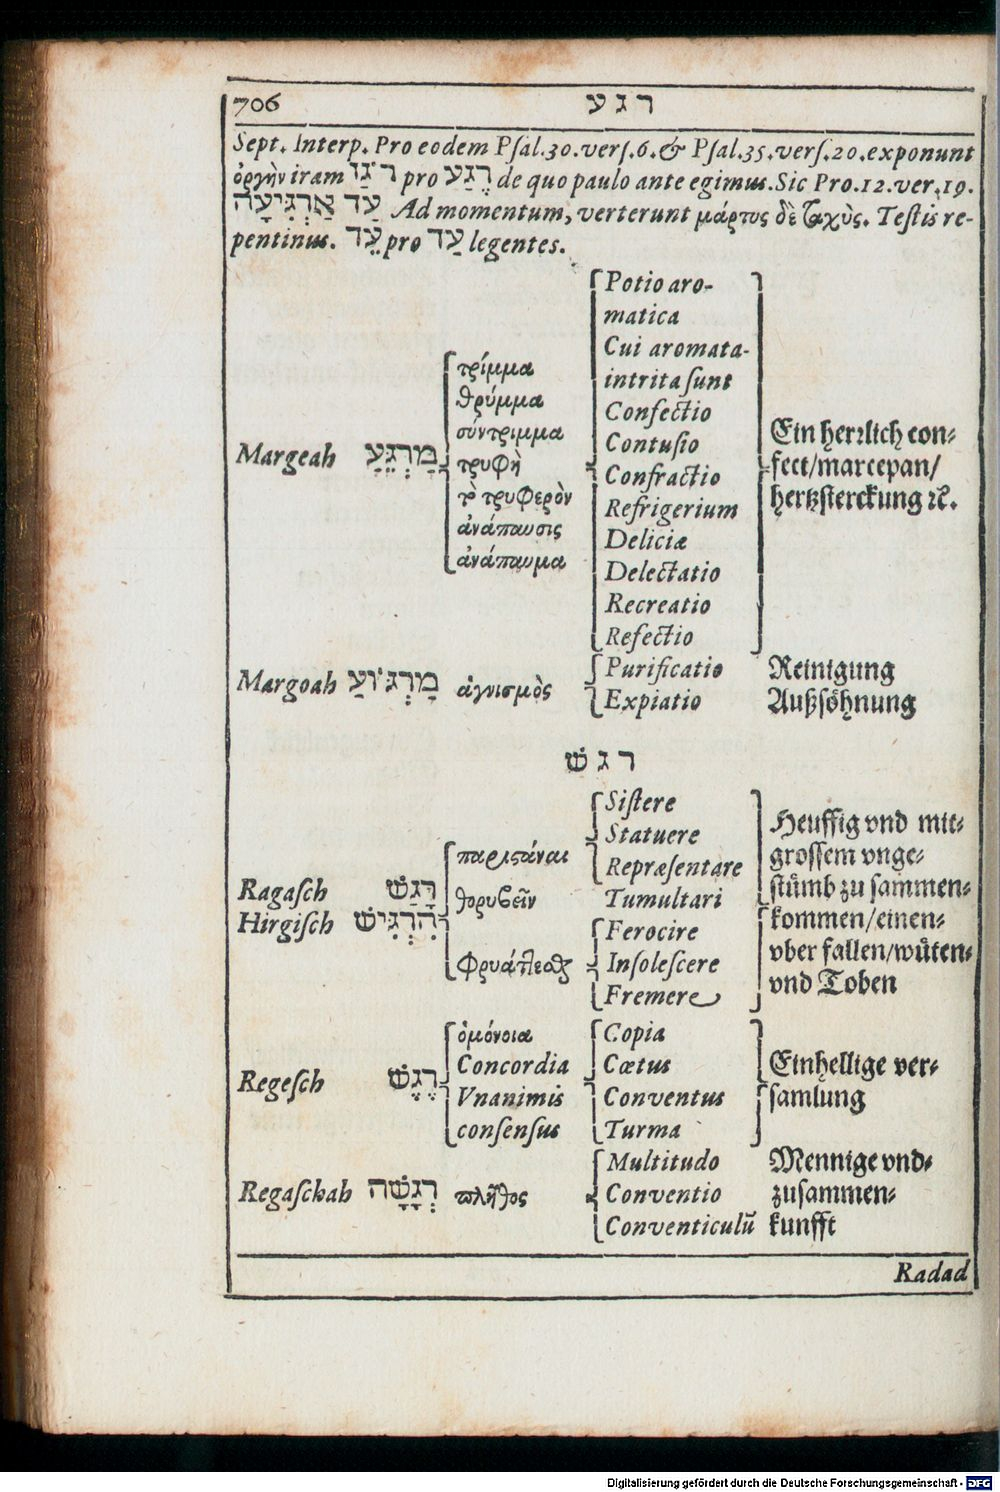 706 רגע
Sept. Interp. Pro eodem Psal.30.vers.6.& Psal.35.vers.20.exponunt
ὀργὴν iram רֹגַז pro רֶגַע de quo paulo ante egimus. Sic Pro.12.ver.19.
עַד אַרְגִּיעָה Ad momentum, verterunt μάρτυς δὲ ταχὺς. Testis re-
pentinus. עֵד pro עַד legentes.
Margeah מַרְגֵּעָ
τρίμμα
θρύμμα
σύντριμμα
τρυφὴ
τὸ τρυφερὸν
ἀνάπαυσις
ἀνάπαυμα
Potio aro-
matica
Cui aromata-
intrita sunt
Confectio
Contusio
Confractio
Refrigerium
Deliciæ
Delectatio
Recreatio
Refectio
Ein herrlich con-
fect/marcepan/
hertzsterckung ꝛc.
Margoah מַרְגּוֹעַ ἁγνισμὸς
Purificatio
Expiatio
Reinigung
Außsöhnung
רגש
Ragasch רָגַשׁ
Hirgisch הִרְגִּישׁ
παριστάναι
θορυβεῖν
φρυάττεσθαι
Sistere
Statuere
Repræsentare
Tumultari
Ferocire
Insolescere
Fremere
Heuffig vnd mit-
grossem vnge-
stümb zu sammen-
kommen/einen-
vber fallen/wüten-
vnd Toben
Regesch רֶגֶשׁ
ὁμόνοια
Concordia
Vnanimis
consensus
Copia
Cœtus
Conventus
Turma
Einhellige ver-
samlung
Regaschah רְגָשָׁה πλῆθος
Multitudo
Conventio
Conventiculū
Mennige vnd-
zusammen-
kunfft
Radad
Digitalisierung gefördert durch die Deutsche Forschungsgemeinschaft - DFG